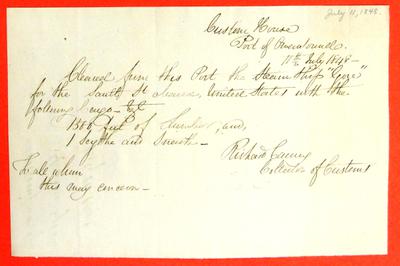 July 11, 1848.
Custom House
Port of Penetanguishene
11th July 1848 —
Cleared from this Port the Steam Ship "Gore"
for the Sault St Maries, United States with the
following Cargo
1500 feet of Lumber, and,
1 Scythe and Sneath —
To all whom
this may concern —
Richard
Collector of Customs